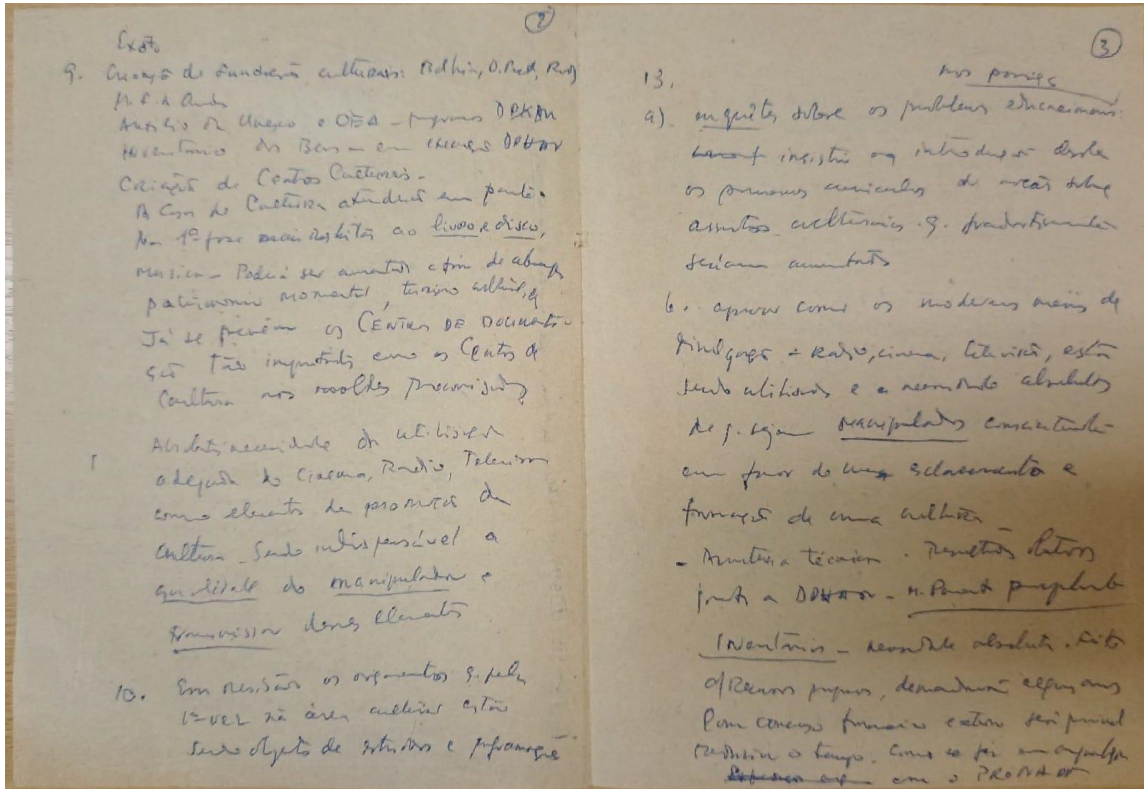 2
Exato
9. Criação de Fundações culturais: Bahia, O. Preto,
M. P. de
Auxílio da Unesco e OEA - programas DPHAN
Inventário dos Bens - em execução DPHAN
Criação de Centros Culturais -
A Casa de Cultura atenderá em parte.
Na 1ª fase mais restrita ao livro e disco,
musica - Poderá ser aumentada a fim de abranger
patrimonio monumental, turismo cultural,
Já se prevêm os CENTROS DE DOCUMENTA-
ção Tão importantes como os Centros de
Cultura nos moldes preconisados
Absoluta necessidade da utilisação
adequada do Cinema, Radio, Televisão
como elementos de promoção da
Cultura. Sendo indispensável a
qualidade do manipulador e
transmissor desses elementos
10. Em revisão os orçamentos q. pela
1ª vez na área cultural estão
sendo objeto de estudos e programação
3
13. nos países
a) enquêtes sobre os problemas educacionais:
insistir na introdução desde
os primeiros curriculos de noções sobre
assuntos culturais q. gradativamente
seriam aumentados
b. apurar como os modernos meios de
divulgação - Radio, cinema, televisão, estão
sendo utilisados e a necessidade absoluta
de q. sejam manipulados conscientemente
em favor de um esclarecimento e
formação de uma cultura -
- Assistência técnica. Resultados
junto a DPHAN - M. Parent
Inventários - necessidade absoluta. Feito
c/ Recursos proprios, demandarão alguns anos
Com concurso financeiro externo será possivel
reduzir o tempo. Como se fez em
com o